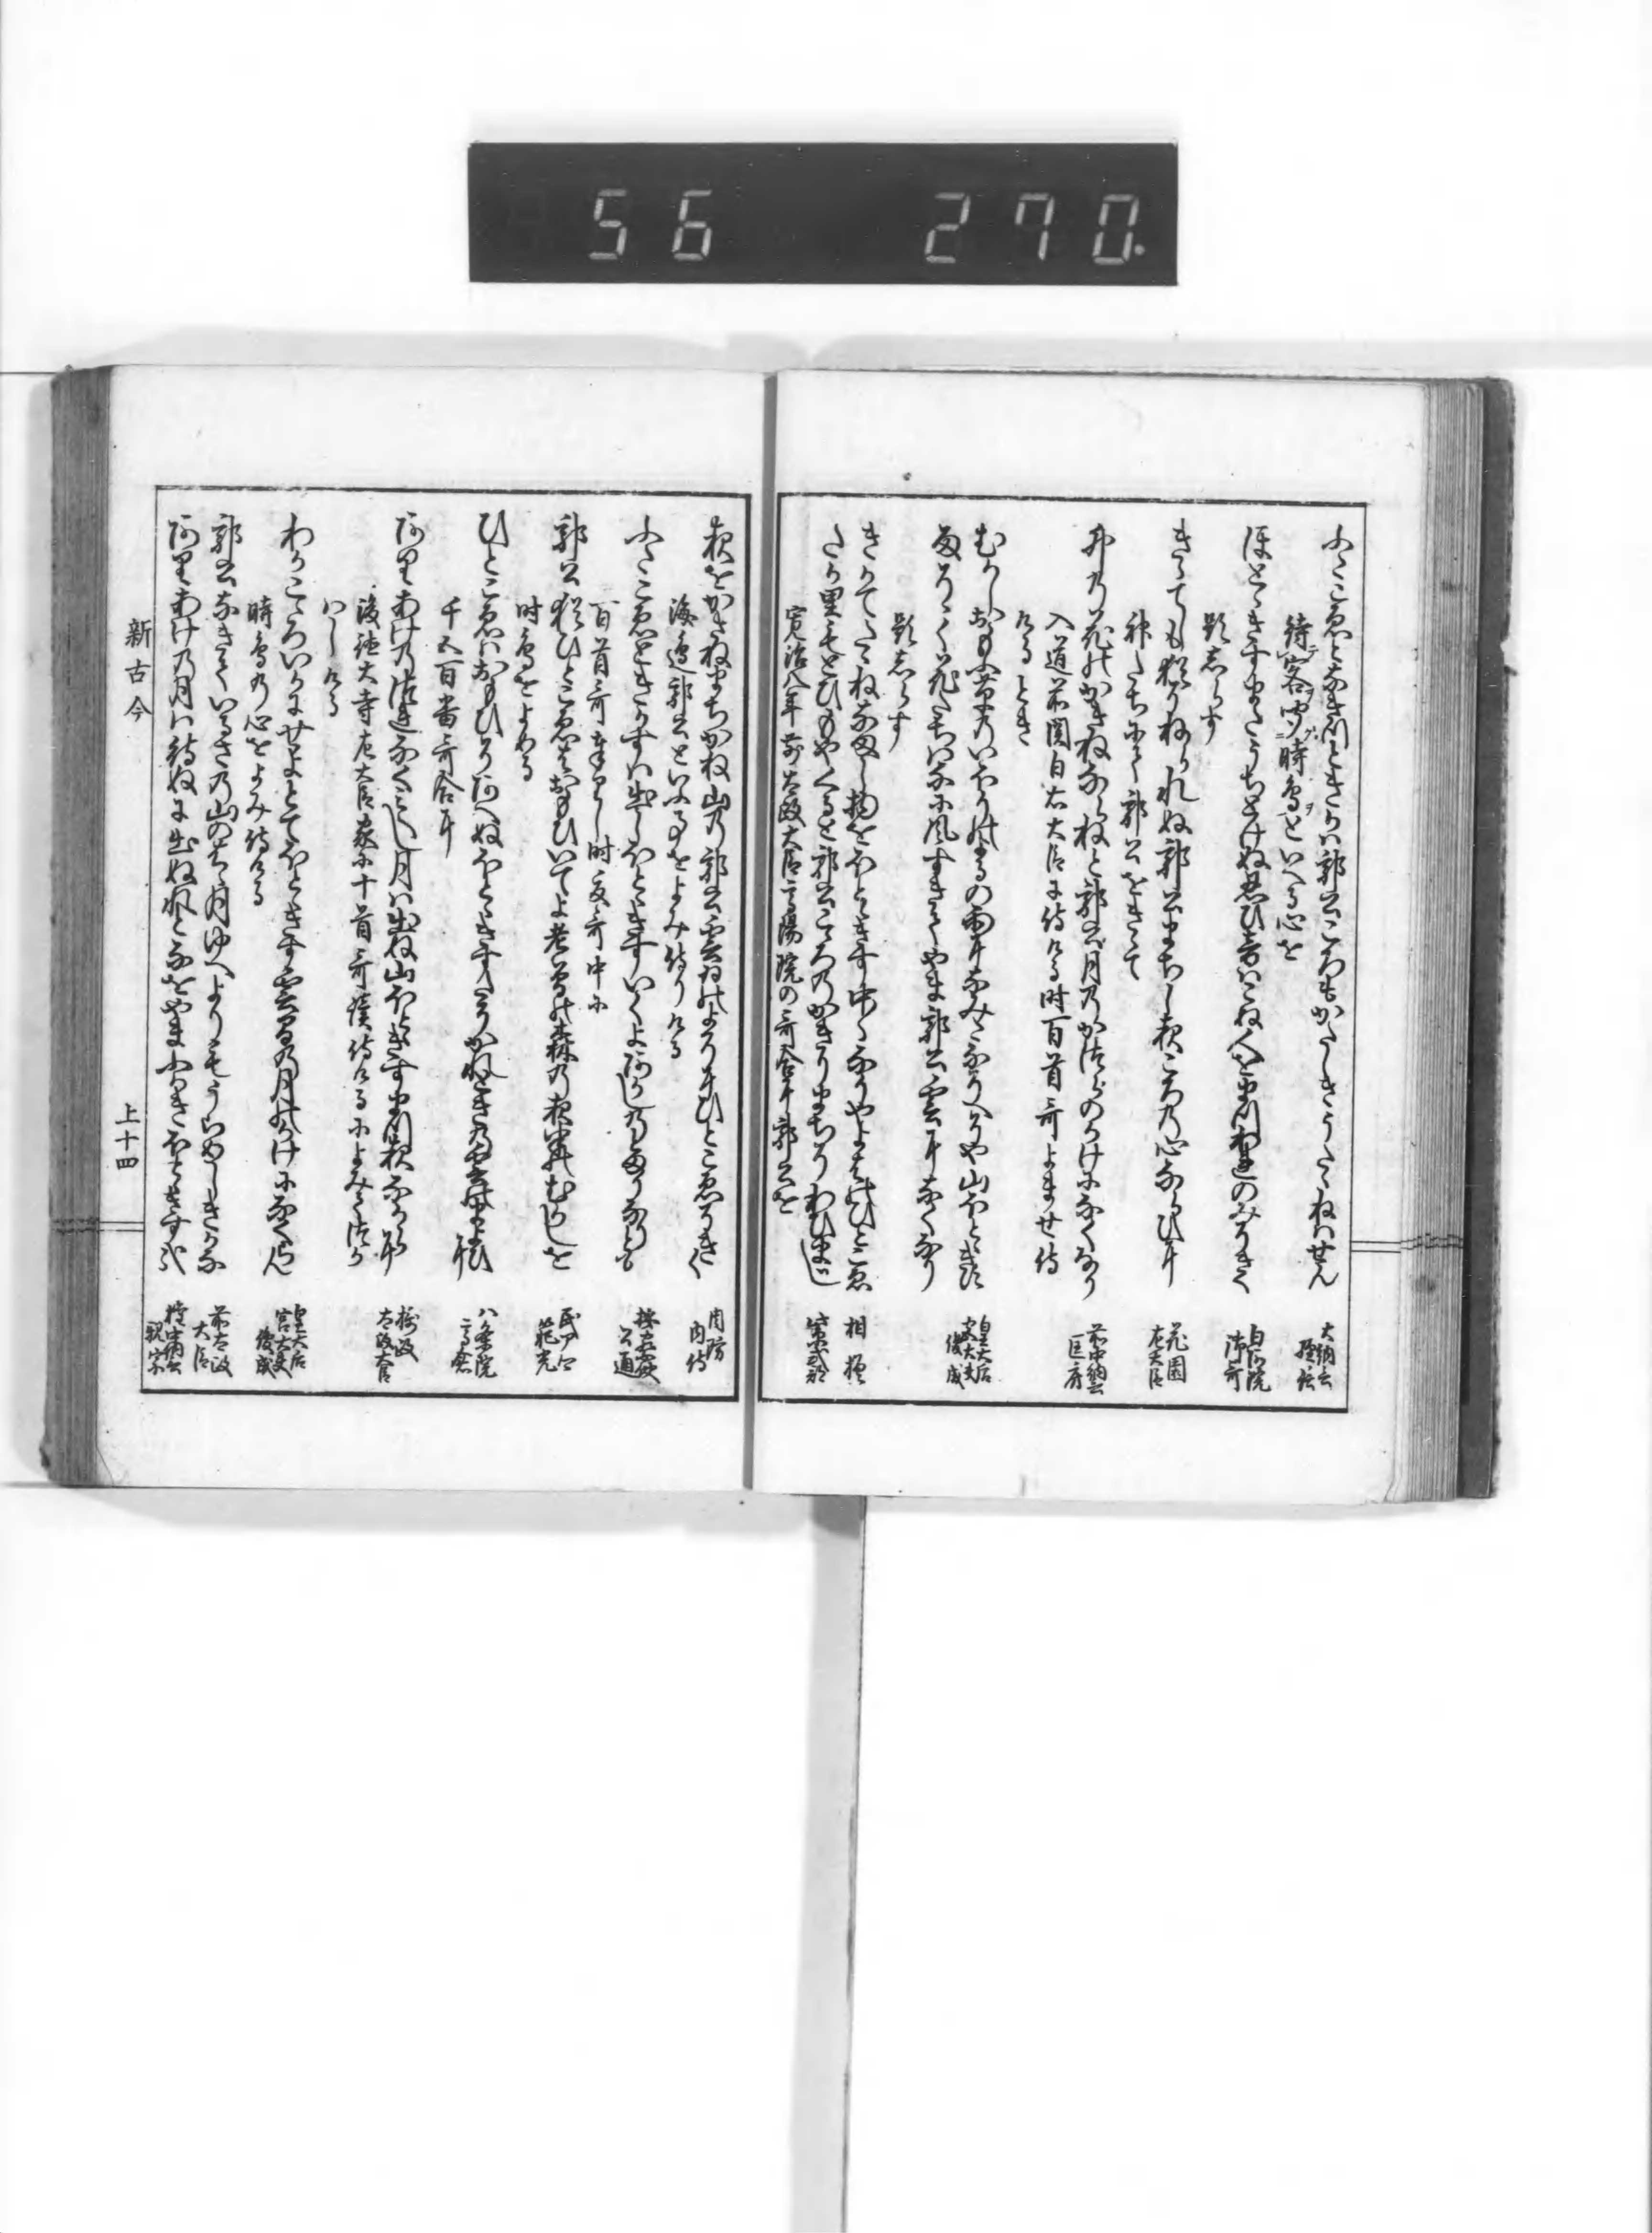 ふたこゑとなきつときかは郭公ころもかたしきうたゝねはせん 大納言経信
待客聞時鳥といへる心を
ほとゝきすまたうちとけぬ忍ひ音はこぬ人を待つわれのみそきく 白河院御哥
題しらす
きゝても猶そねられぬ郭公まちし夜ころの心ならひに 花園左大臣
神たちにて郭公をきゝて
卯の花のかきねならねと郭公月のかつらのかけになくなり 前中納言匡房
入道前関白右大臣に侍ける時百首哥よませ侍
けるとき
むかしおもふ草のいほりのよるの雨になみたなそへそ山ほとゝきす 皇太后宮大夫俊成
雨そゝく花たちはなに風すきてやま郭公雲になくなり
題しらす
きかてたゝねなまし物をほとゝきす中々なりやよはのひとこゑ 相模
たか里もとひもやくると郭公こゝろのかきりまちそわひにし 紫式部
寛治八年前太政大臣高陽院の哥合に郭公を
夜をかさねまちかね山の郭公雲ゐのよそにひとこゑそきく 周防内侍
海辺郭公といふ事をよみ侍りける
ふたこゑときかすは出しほとゝきすいくよあかしのとまりなりとも 按察使公通
百首哥奉りし時夏哥中に
郭公猶ひとこゑはおもひいてよ老曽の森の夜半のむかしを 民部卿範光
時鳥をよめる
ひとこゑはおもひそあへぬほとゝきすたそかれときの雲のまよひに 八条院高倉
千五百番哥合に
ありあけのつれなくみえし月は出ぬ山ほとゝきす待つ夜なからに 摂政太政大臣
後徳大寺左大臣家に十首哥読侍けるによみてつか
はしける
わかこゝろいかにせよとてほとゝきす雲間の月のかけになくらん 皇太后宮大夫俊成
時鳥の心をよみ侍ける
郭公なきているさの山のは月ゆへよりもうらめしきかな 前太政大臣
ありあけの月は待ぬに出ぬれと猶やまふかきほとゝきすかな 権中納言親宗
新古今
上十四
56 270